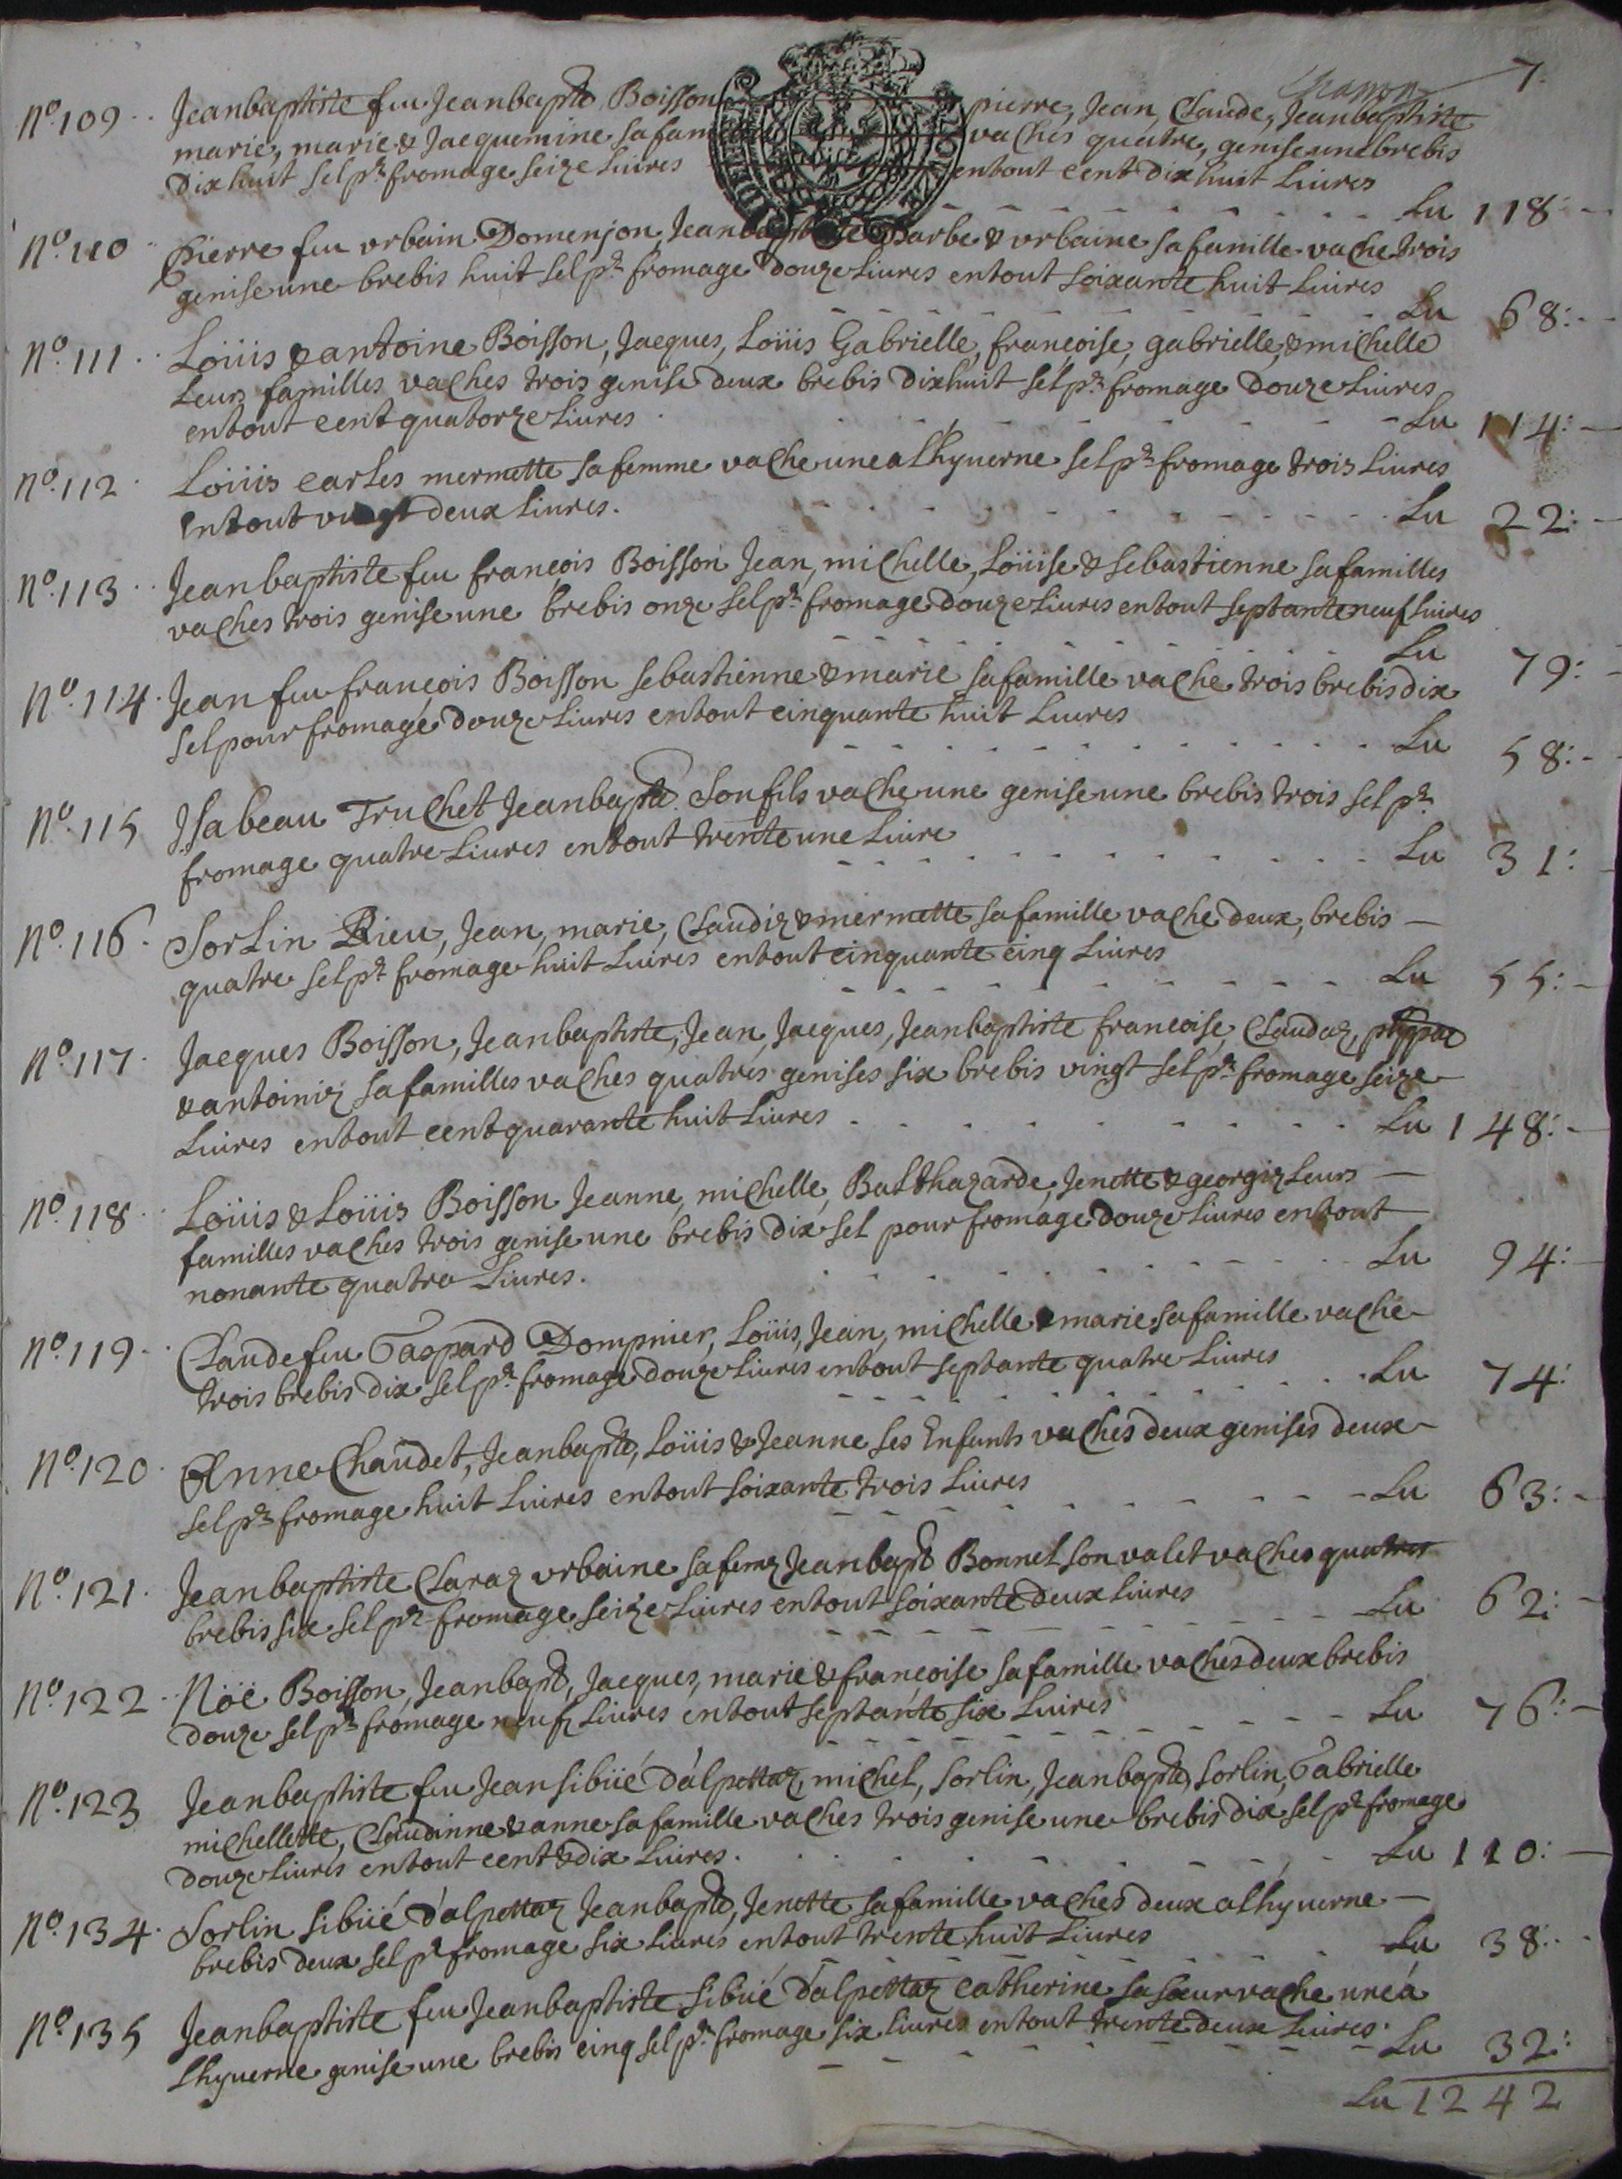 7.
N.º 109 Jeanbaptiste feu Jeanbapte Boisson pierre, Jean, Claude, Jeanbaptiste
marie, marie & Jacquemine sa vaches quatre, genise une brebis
dixhuit sel pr fromage seize Liures entout cent dix huit Liures
Lu 118:
N.º 110 Pierre feu vrbain Domenjon, Barbe & vrbaine sa famille vache trois
genise une brebis huit sel pr fromage douze Liures entout soixante huit Liures
Lu 68:
N.º 111 Loüis & antoine Boisson, Jacques, Loüis Gabrielle, françoise, gabrielle, & michelle
Leurs familles vaches trois genise deux brebis dixhuit sel pr fromage douze Liures
entout cent quatorze Liures Lu 114:
N.º 112 Loüis carles mermette sa femme vache une a Lhyuerne sel pr fromage trois Liures
Entout vingt deux Liures. Lu 22:
N.º 113 Jeanbaptiste feu françois Boisson Jean, michelle, Loüise & sebastienne sa familles
vaches trois genise une brebis onze sel pr fromage douze Liures entout septante neuf Liures
Lu 79:
N.º 114 Jean feu françois Boisson sebastienne & marie sa famille vache trois brebis dix
sel pour fromage douze Liures entout cinquante huit Liures
Lu 58:
N.º 115 Jsabeau Truchet Jeanbapte son fils vache une genise une brebis trois sel pr
fromage quatre Liures entout trente une Liure Lu 31:
N.º 116 Sorlin Rieu, Jean, marie, Claudiz & mermette sa famille vache deux, brebis
quatre sel pr fromage huit Liures entout cinquante cinq Liures Lu 55:
N.º 117 Jacques Boisson, Jeanbaptiste, Jean, Jacques, Jeanbaptiste françoise, Claudaz,
& antoiniz sa familles vaches quatres genises six brebis vingt sel pr fromage seize
Liures entout cent quarante huit Liures Lu 148:
N.º 118 Loüis & Loüis Boisson Jeanne, michelle, Balthazarde, Jenette & georgiz Leurs
familles vaches trois genise une brebis dix sel pour fromage douze Liures entout
nonante quatre Liures. Lu 94:
N.º 119 Claude feu Gaspard Dompnier, Loüis, Jean, michelle & marie sa famille vache
trois brebis dix sel pr fromage douze Liures entout septante quatre Liures Lu 74:
N.º 120 Anne Chaudet, Jeanbapte, Loüis & Jeanne ses Enfants vaches deux genises deux
sel pr fromage huit Liures entout soixante trois Liures Lu 63:
N.º 121 Jeanbaptiste Claraz vrbaine sa feme Jeanbapt Bonnel son valet vaches quatres
brebis six sel pr fromage seize Liures entout soixante deux Liures Lu 62:
N.º 122 Nöe Boisson, Jeanbapt, Jacques, marie & françoise sa famille vaches deux brebis
douze sel pr fromage neuf Liures entout septante six Liures Lu 76:
N.º 123 Jeanbaptiste feu Jean sibüé dalpettaz, michel, sorlin, Jeanbapte, sorlin, Gabrielle
michellette, Claudinne & anne sa famille vaches trois genise une brebis dix sel pr fromage
douze Liures entout cent & dix Liures. Lu 110:
N.º 134 Sorlin sibüé dalpettaz Jeanbapte, Jenette sa famille vaches deux a lhyuerne
brebis deux sel pr fromage six Liures entout trente huit Liures Lu 38:
N.º 135 Jeanbaptiste feu Jeanbaptiste sibüé dalpettaz catherine sa soeur vache une á
Lhyuerne genise une brebis cinq sel pr fromage six Liures entout trente deux Liures. Lu 32:
Lu 1242